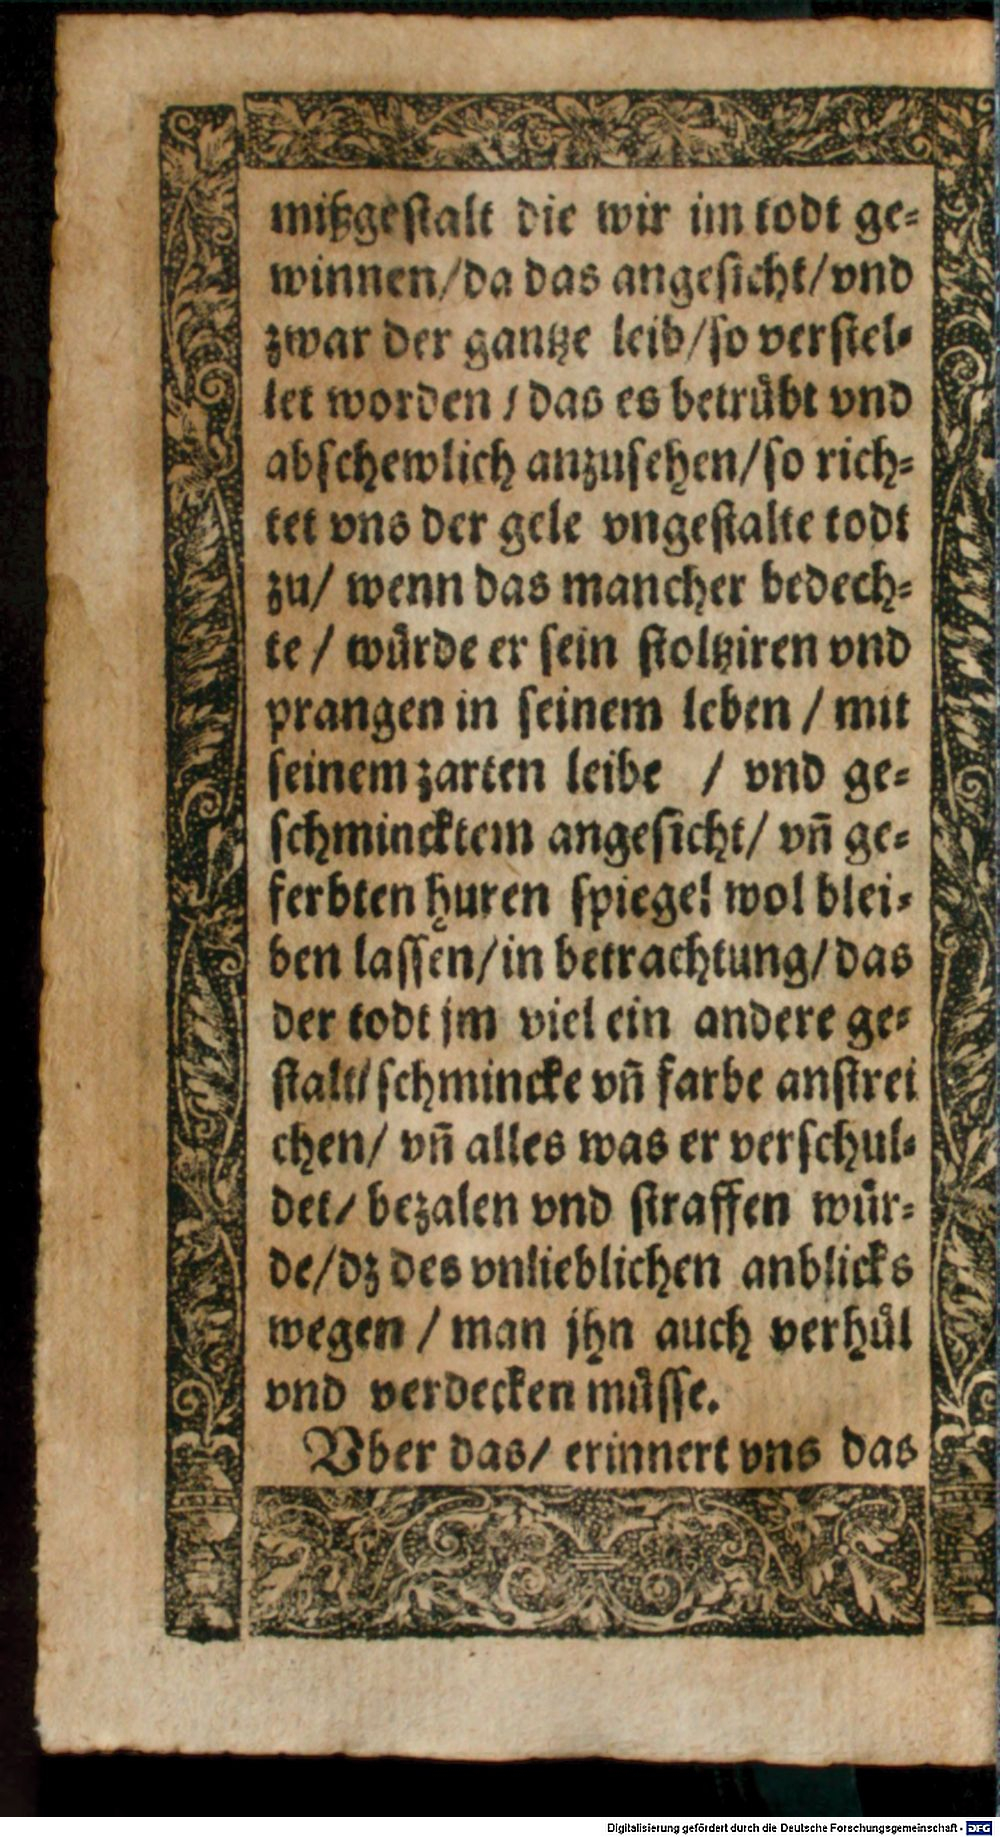 mißgestalt die wir im todt ge-
winnen/da das angesicht/vnd
zwar der gantze leib/so verstel-
let worden / das es betrübt vnd
abschewlich anzusehen/so rich-
tet vns der gele vngestalte todt
zu/ wenn das mancher bedech-
te / würde er sein stoltziren vnd
prangen in seinem leben / mit
seinem zarten leibe / vnd ge-
schmincktem angesicht/ vñ ge-
ferbten huren spiegel wol blei-
ben lassen/in betrachtung/das
der todt jm viel ein andere ge-
stalt/schmincke vñ farbe anstrei
chen/ vñ alles was er verschul-
det/ bezalen vnd straffen wür-
de/dz des vnlieblichen anblicks
wegen / man jhn auch verhül
vnd verdecken müsse.
Vber das/ erinnert vns das
Digitalisierung gefördert durch die Deutsche Forschungsgemeinschaft - DFG